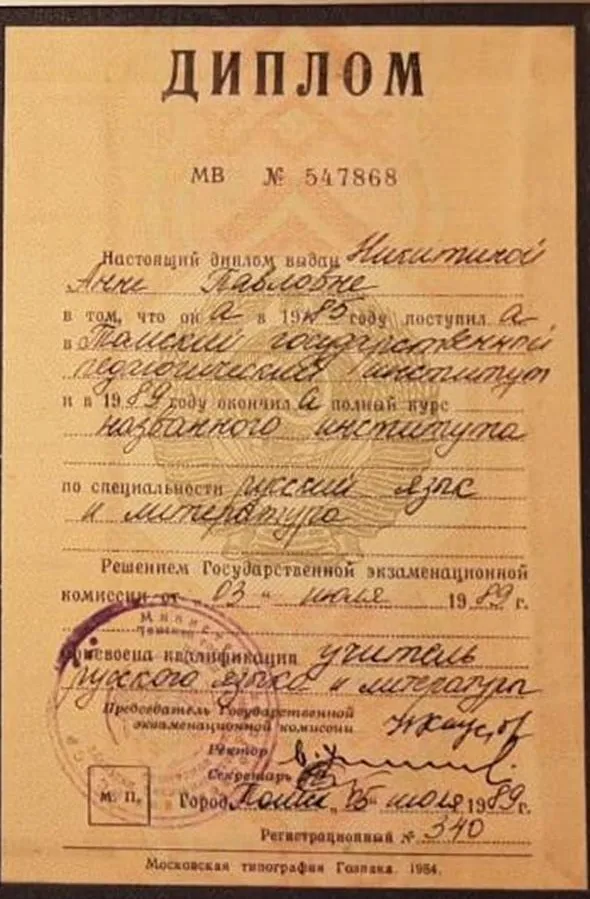 ДИПЛОМ
МВ № 547868
Настоящий диплом выдан Никитиной
Анне Павловне
в том, что он а в 1985 году поступил а
в Томский государственный
педагогический институт
и в 1989 году окончил а полный курс
названного института
по специальности русский язык
и литература
Решением Государственной экзаменационной
комиссии от 03 " июля 1989 г.
присвоена квалификация учитель
русского языка и литературы
Председатель Государственной
экзаменационной комиссии
Ректор
Секретарь
М. П.
Город Томск " 05 " июля 1989 г.
Регистрационный № 340
Московская типография Гознака. 1984.